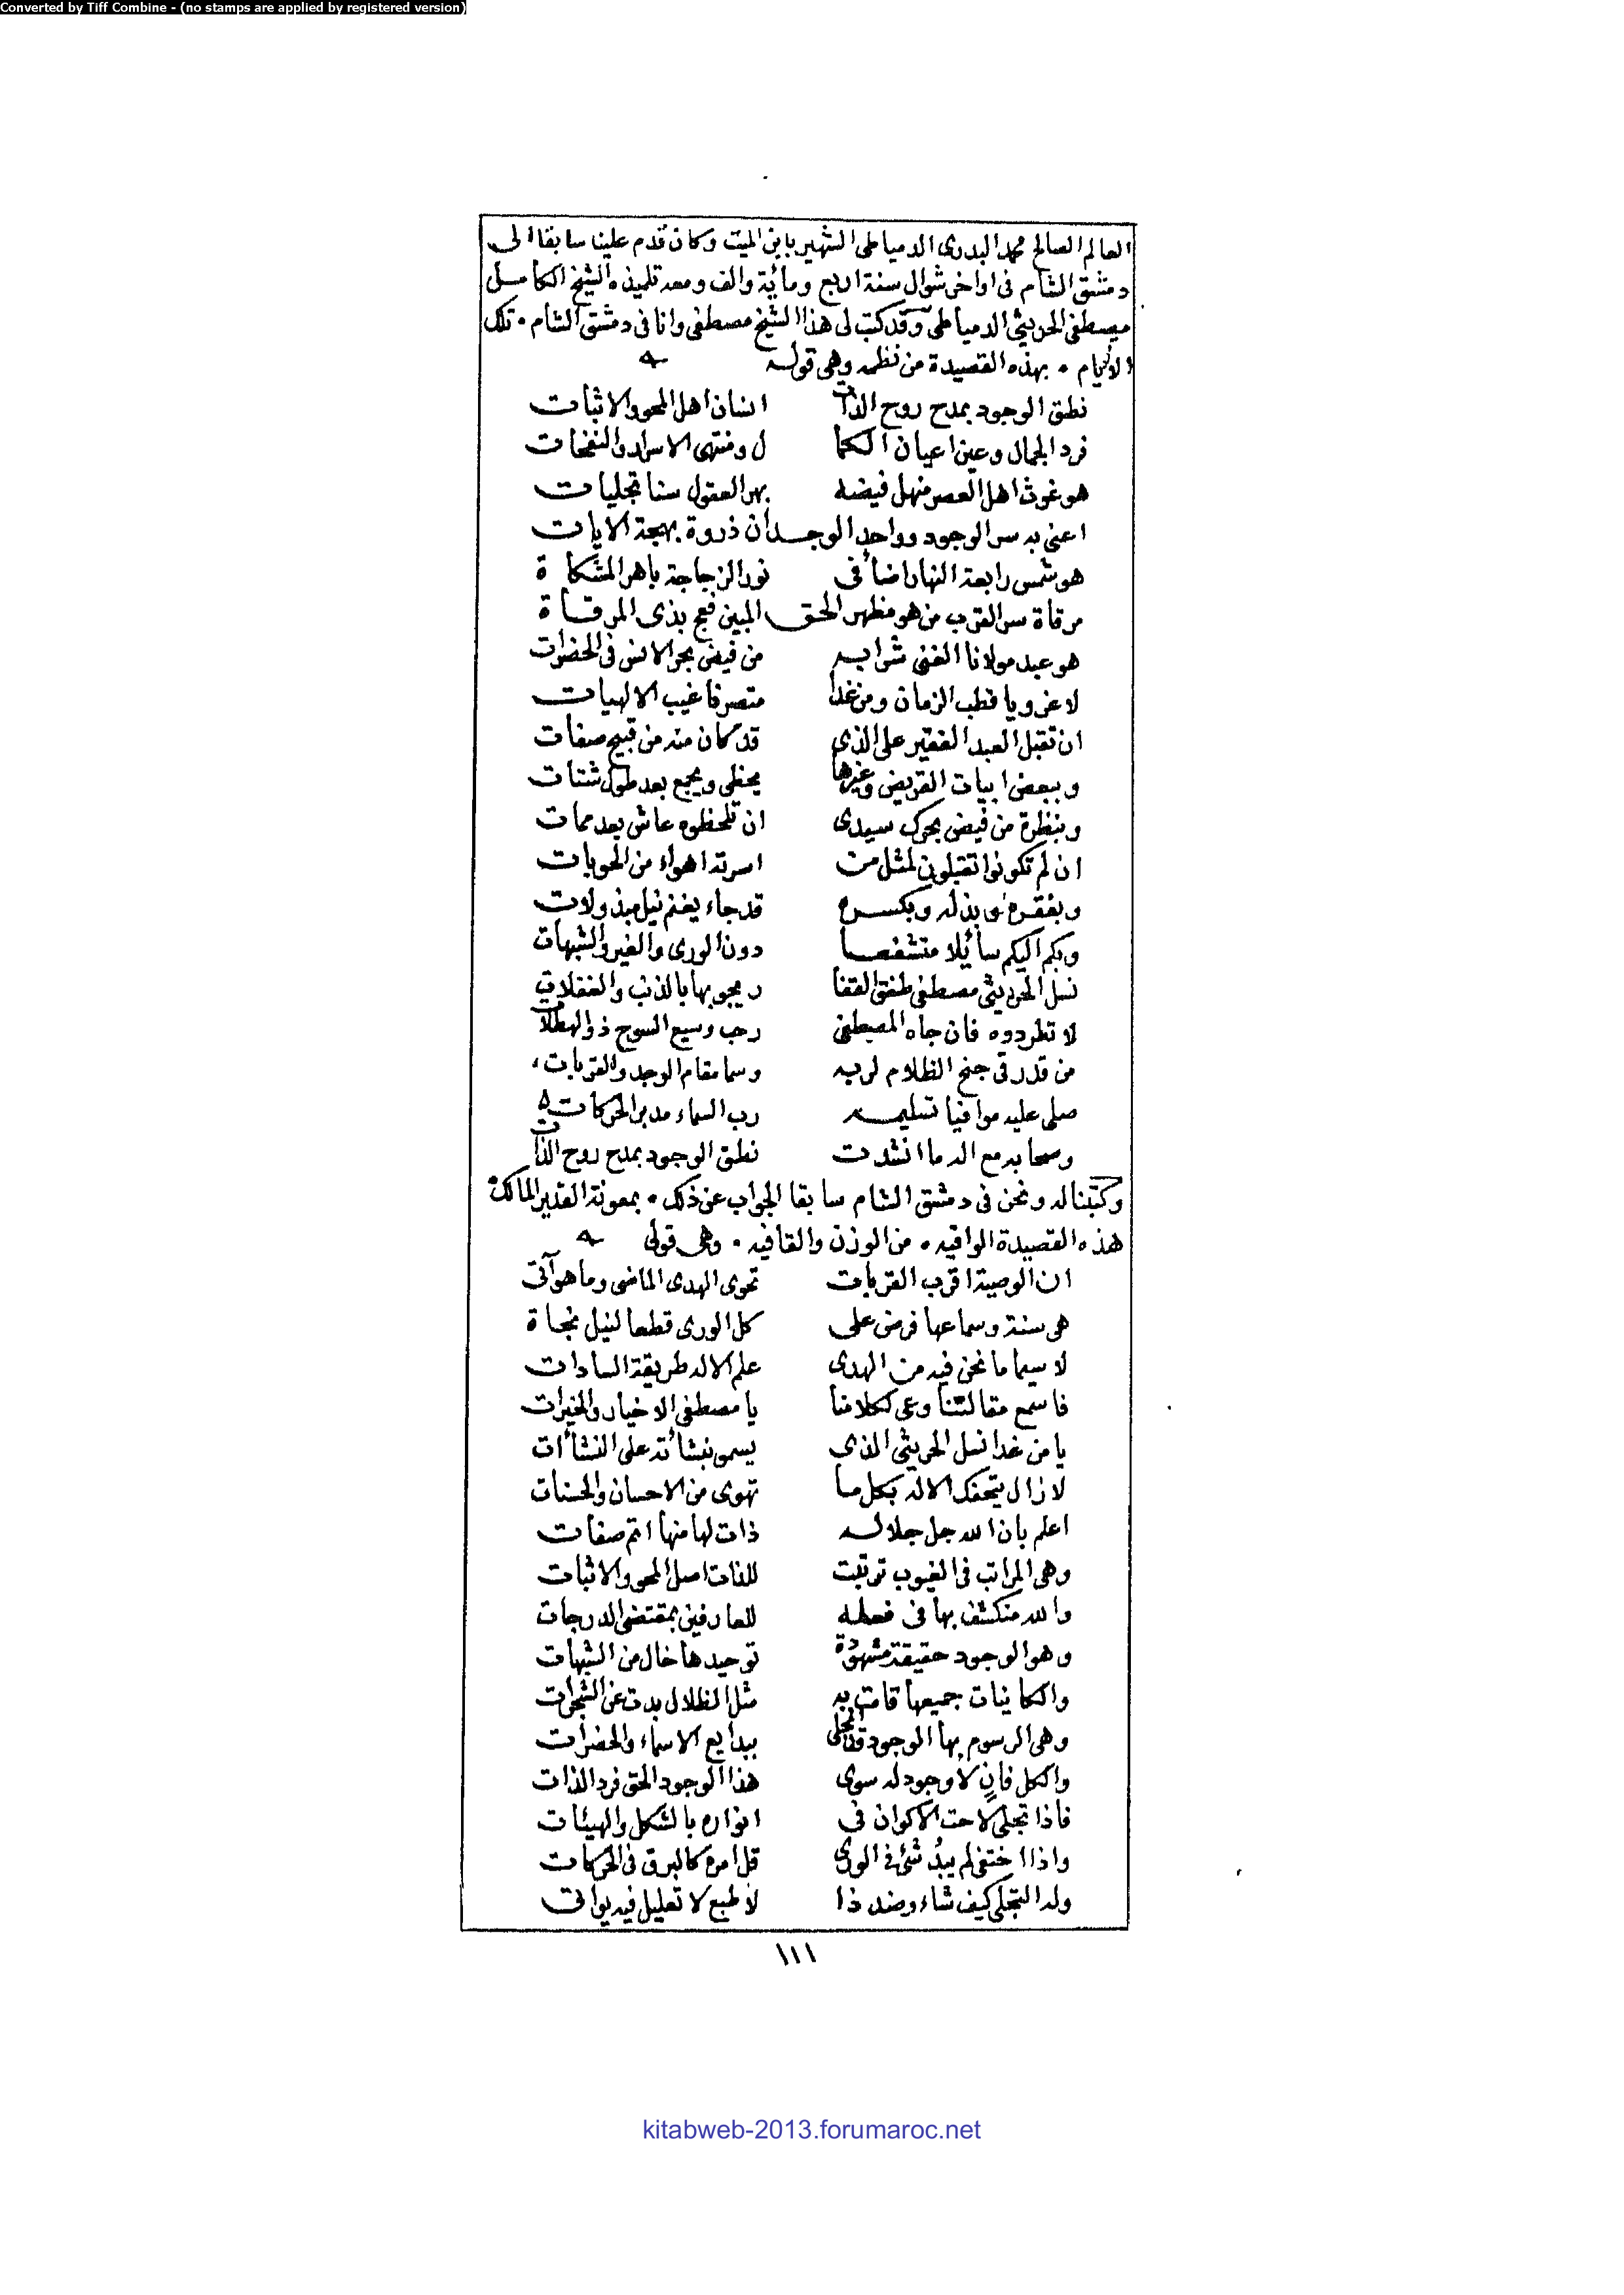 Converted by Tiff Combine - (no stamps are applied by registered version)
العالم الصالح محمد البدرى الدمياطى الشهير بابن الميت وكان قدم علينا سابقا الى
دمشق الشام فى اواخر شوال سنة اربع ومائة والف ومعه تلميذه الشيخ الكامل
مصطفى الحريثى الدمياطى وقد كتب لى هذا الشيخ مصطفى وانا فى دمشق الشام • تلك
الايام • بهذه القصيدة من نظمه وهى قوله
نطق الوجود بمدح روح الذات انسان اهل المحو والاثبات
فرد الجمال وعين اعيان الكما ل ومنتهى الاسرار والنفحات
هو غوث اهل العصر منهل فيضه بهر العقول سنا تجليات
اعنى به سر الوجود وواحد الوجدان ذروة بهجة الايات
هو شمس رابعة النهار اضأ فى نور الزجاجة باهر المشكاة
مرقاة سر القرب من هو مظهر الحق المبين فعج بذى المرقاة
هو عبد مولانا الغنى شرابه من فيض بحر الانس فى الحضرات
لا غرو يا قطب الزمان ومن غدا متصرفا غيب الالهيات
ان تقبل العبد الفقير على الذى قد كان منه من قبيح صفات
وببعض ابيات القريض وغيرها يحظى ويجمع بعد طول شتات
وبنظرة من فيض بحرك سيدى ان تلحظوه عاش بعد ممات
ان لم تكونوا تقبلون لمثل من اسرته اهواء من الحوبات
وبفقره وبذله وبكسره قد جاء يغنم نيل مبذولات
وبكم اليكم سائلا متشفعا دون الورى والغير والشبهات
نسل الحريثى مصطفى طفق القفا ر يجوبها بالذنب والغفلات
لا تطردوه فان جاه المصطفى رحب وسيع السوح ذو الهطلات
من قد رقى جنح الظلام لربه وسما مقام الوجد والقربات
صلى عليه موافيا تسليمه رب السماء مدبر الحركات
وصحابه مع اله ما انشدت نطق الوجود بمدح روح الذات
وكتبنا له ونحن فى دمشق الشام سابقا الجواب عن ذلك • بمعونة القدير المالك
هذه القصيدة الوافيه • من الوزن والقافيه • وهى قولى
ان الوصية اقرب القربات تحوى الهدى الماضى وما هو آتى
هى سنة وسماعها فرض على كل الورى قطعا لنيل نجاة
لا سيما ما نحن فيه من الهدى علم الاله طريقة السادات
فاسمع مقالتنا وعى لكلامنا يا مصطفى الاخيار والخيرات
يا من غدا نسل الحريثى الذى يسمو بنشأته على النشأات
لا زال يتحفك الاله بكل ما تهوى من الاحسان والحسنات
اعلم بان الله جل جلاله ذات لها منها اتم صفات
وهى المراتب فى الغيوب ترتبت للذات اصل المحو والاثبات
والله منكشف بها فى فعله للعارفين بمقتضى الدرجات
وهو الوجود حقيقة مشهودة توحيدها خال من الشبهات
والكائنات جميعها قامت به مثل الظلال بدت عن الشجرات
وهى الرسوم بها الوجود قد انجلى ببدايع الاسماء والحضرات
والكل فانٍ لا وجود له سوى هذا الوجود الحق فرد الذات
فاذا تجلى لاحت الاكوان فى انواره بالشكل والهيئات
واذا اختفى لم يبدُ شئ فى الورى قل امره كالبرق فى الحركات
وله التجلى كيف شاء وضد ذا لا طبع لا تعليل فيه يواتى
١١١
kitabweb-2013.forumaroc.net